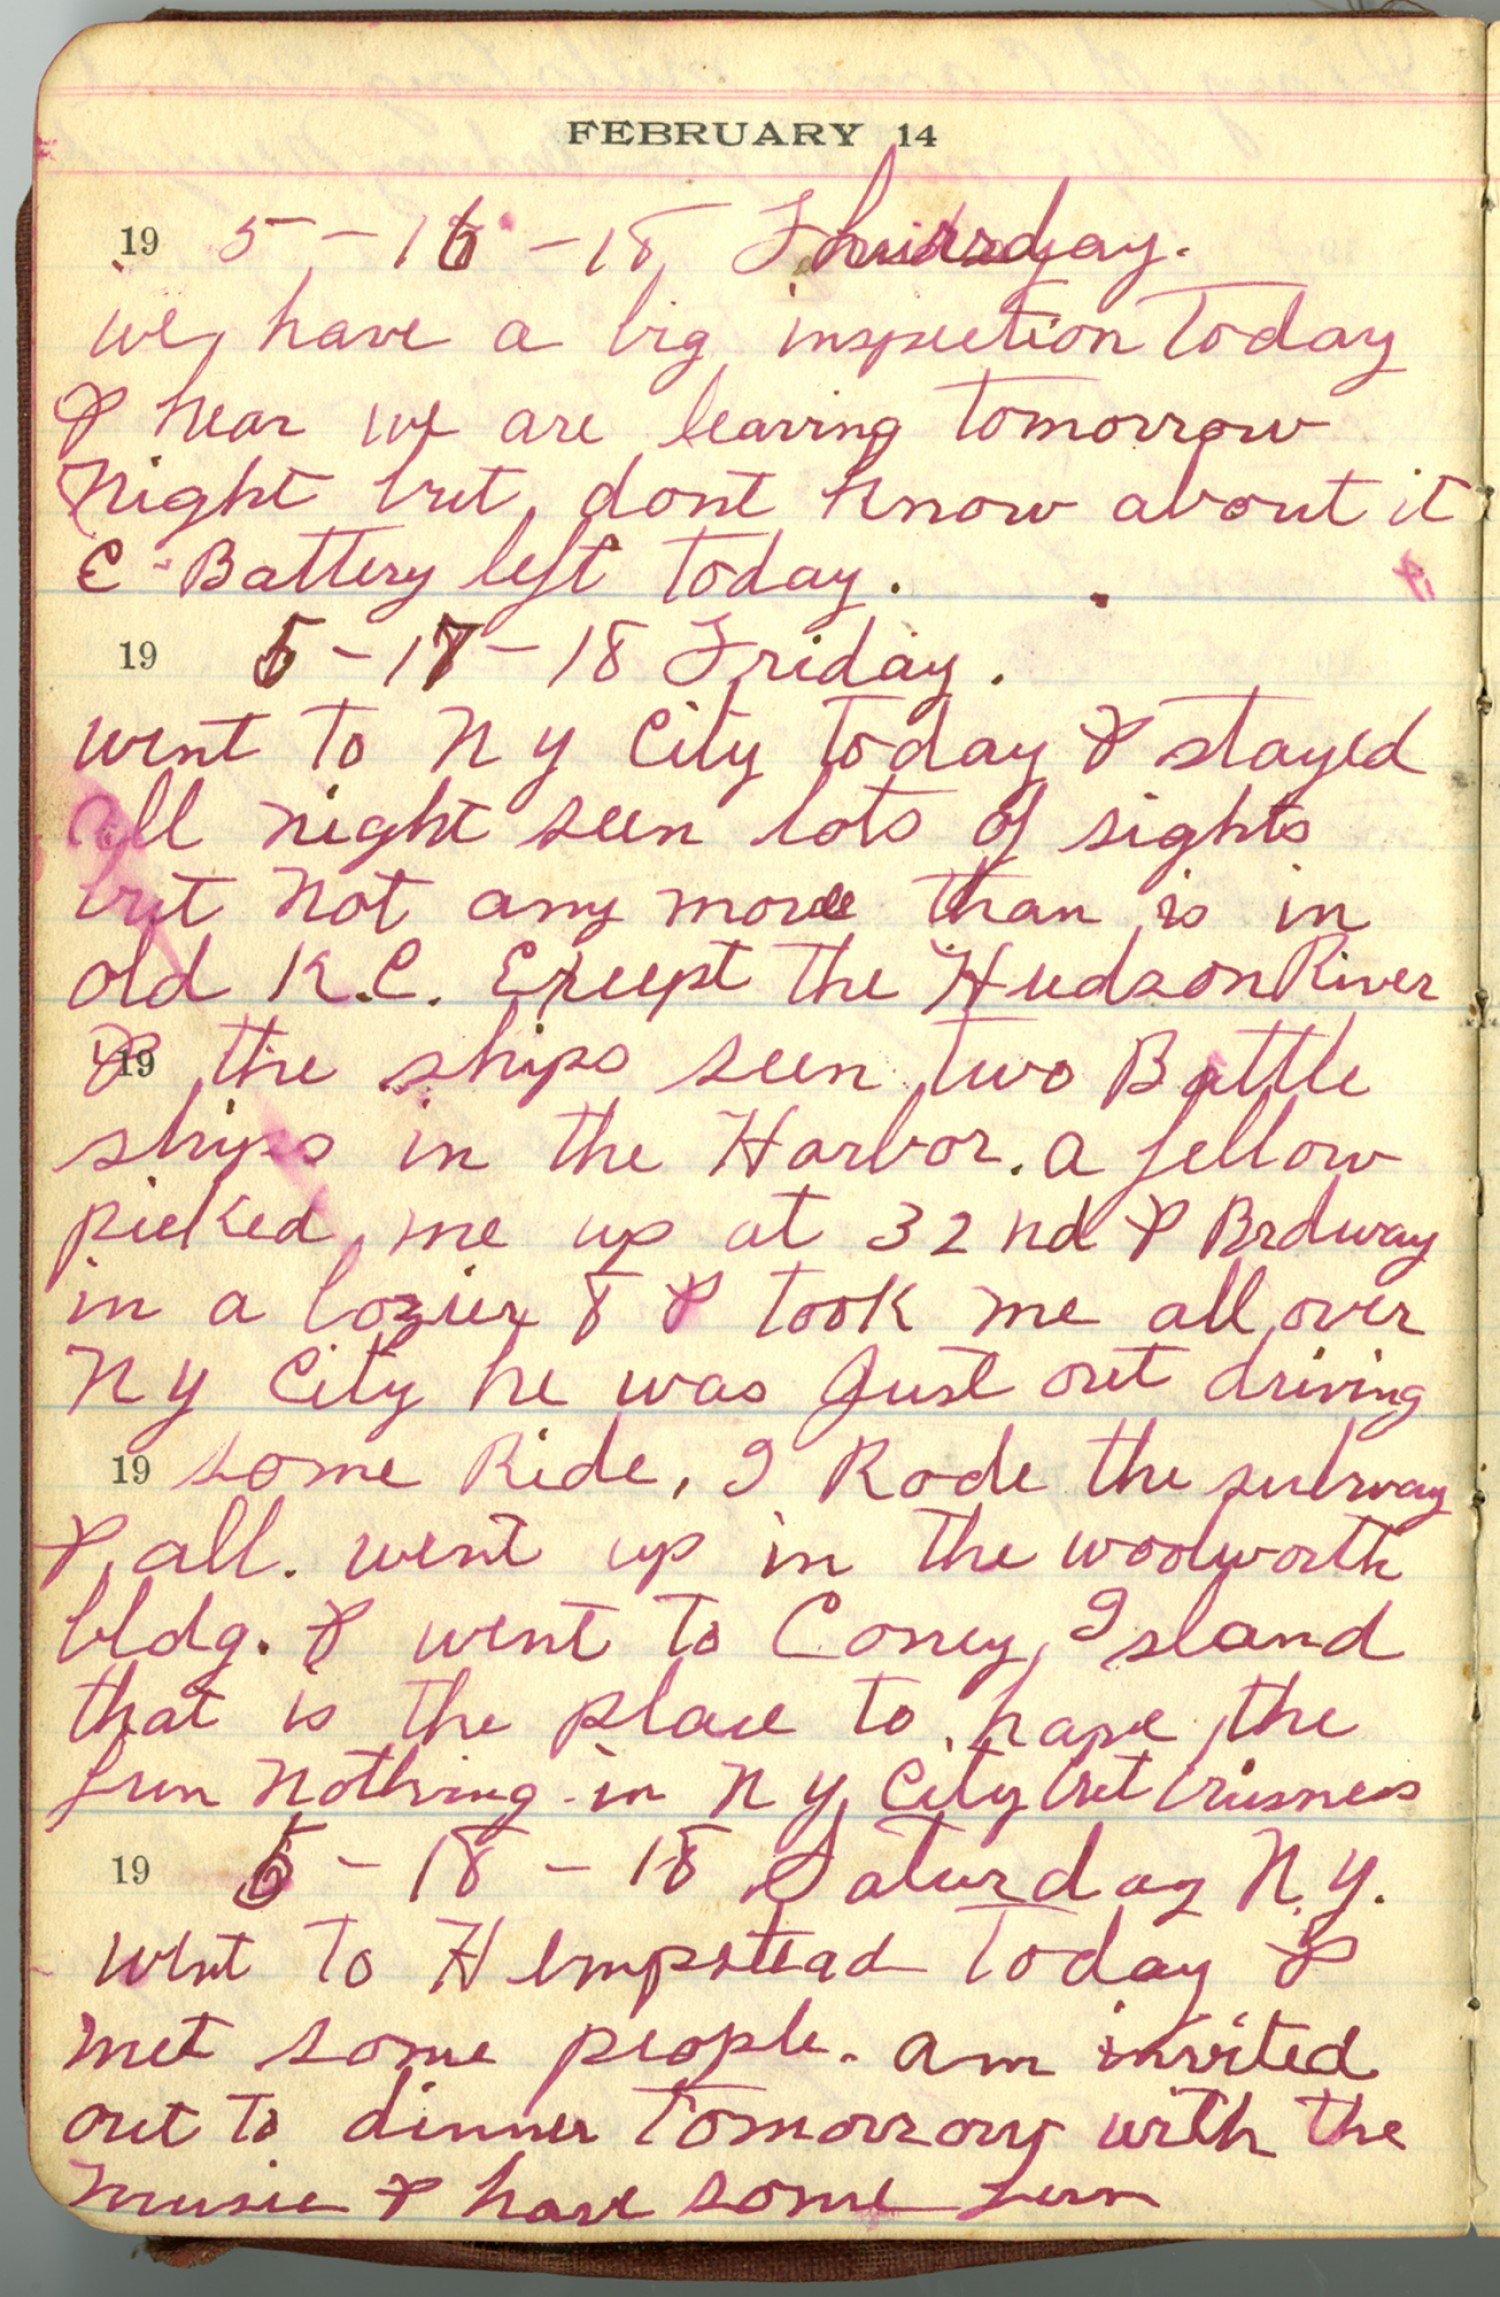 FEBRUARY 14
19 5-16-18 Thursday.
we have a big inspection Today
& hear we are leaving tomorrow
Night but dont Know about it
E-Battery left today.
19 5-17-18 Friday.
went to N Y City today & stayed
all night seen lots of sights
but Not any more than is in
old K.C. Except the Hudson River
19 & the ships seen two Battle
ships in the Harbor. a fellow
picked me up at 32nd & Brdway
in a lozier 8 & took me all over
N Y City he was Just out driving
19 some Ride, I Rode the subway
& all. went up in the woolworth
bldg. & went to Coney Island
that is the place to have the
fun Nothing in N Y City but business
19 5-18-18 Saturday N.Y.
went to Hempstead Today &
met some people. am invited
out to dinner tomorrow with the
music & have some fun